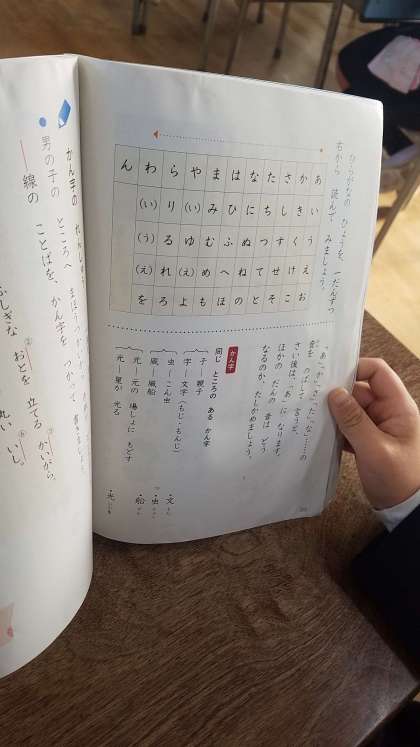 ひらがなの ひょうを、一だんずつ
右から 読んで みましょう。
あ い う え お
か き く け こ
さ し す せ そ
た ち つ て と
な に ぬ ね の
は ひ ふ へ ほ
ま み む め も
や (い) ゆ (え) よ
ら り る れ ろ
わ (い) (う) (え) を
ん
「あ」「か」「さ」「た」「な」……の
音を のばして 言うと、
さい後は、「あ」に なります。
ほかの だんの 音は どう
なるのか、たしかめましょう。
かん字
同じ ところの ある かん字
子―親子
字―文字(もじ・もんじ)
虫―こん虫
風―風船
元―元の 場しょに もどす
光―星が 光る
・文
・虫
・船
・光
かん字の
男の子の ところへ
ことばを、かん字を つかって 書きましょう。
線の
ふしぎな おとを 立てる かいがら。
丸い いし。